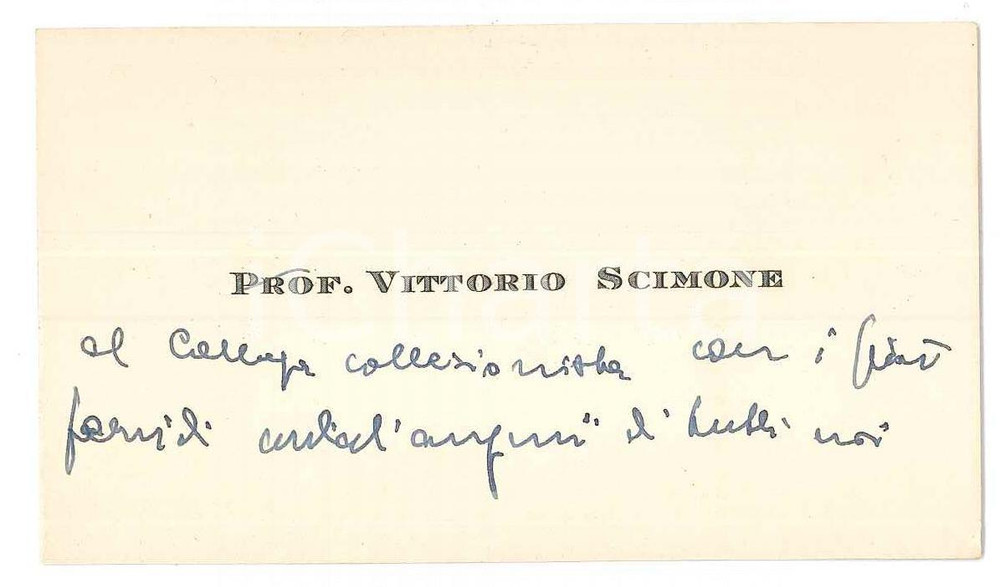 PROF. VITTORIO SCIMONE
al Collega collezionista con i più
fervidi cordiali auguri di tutti noi